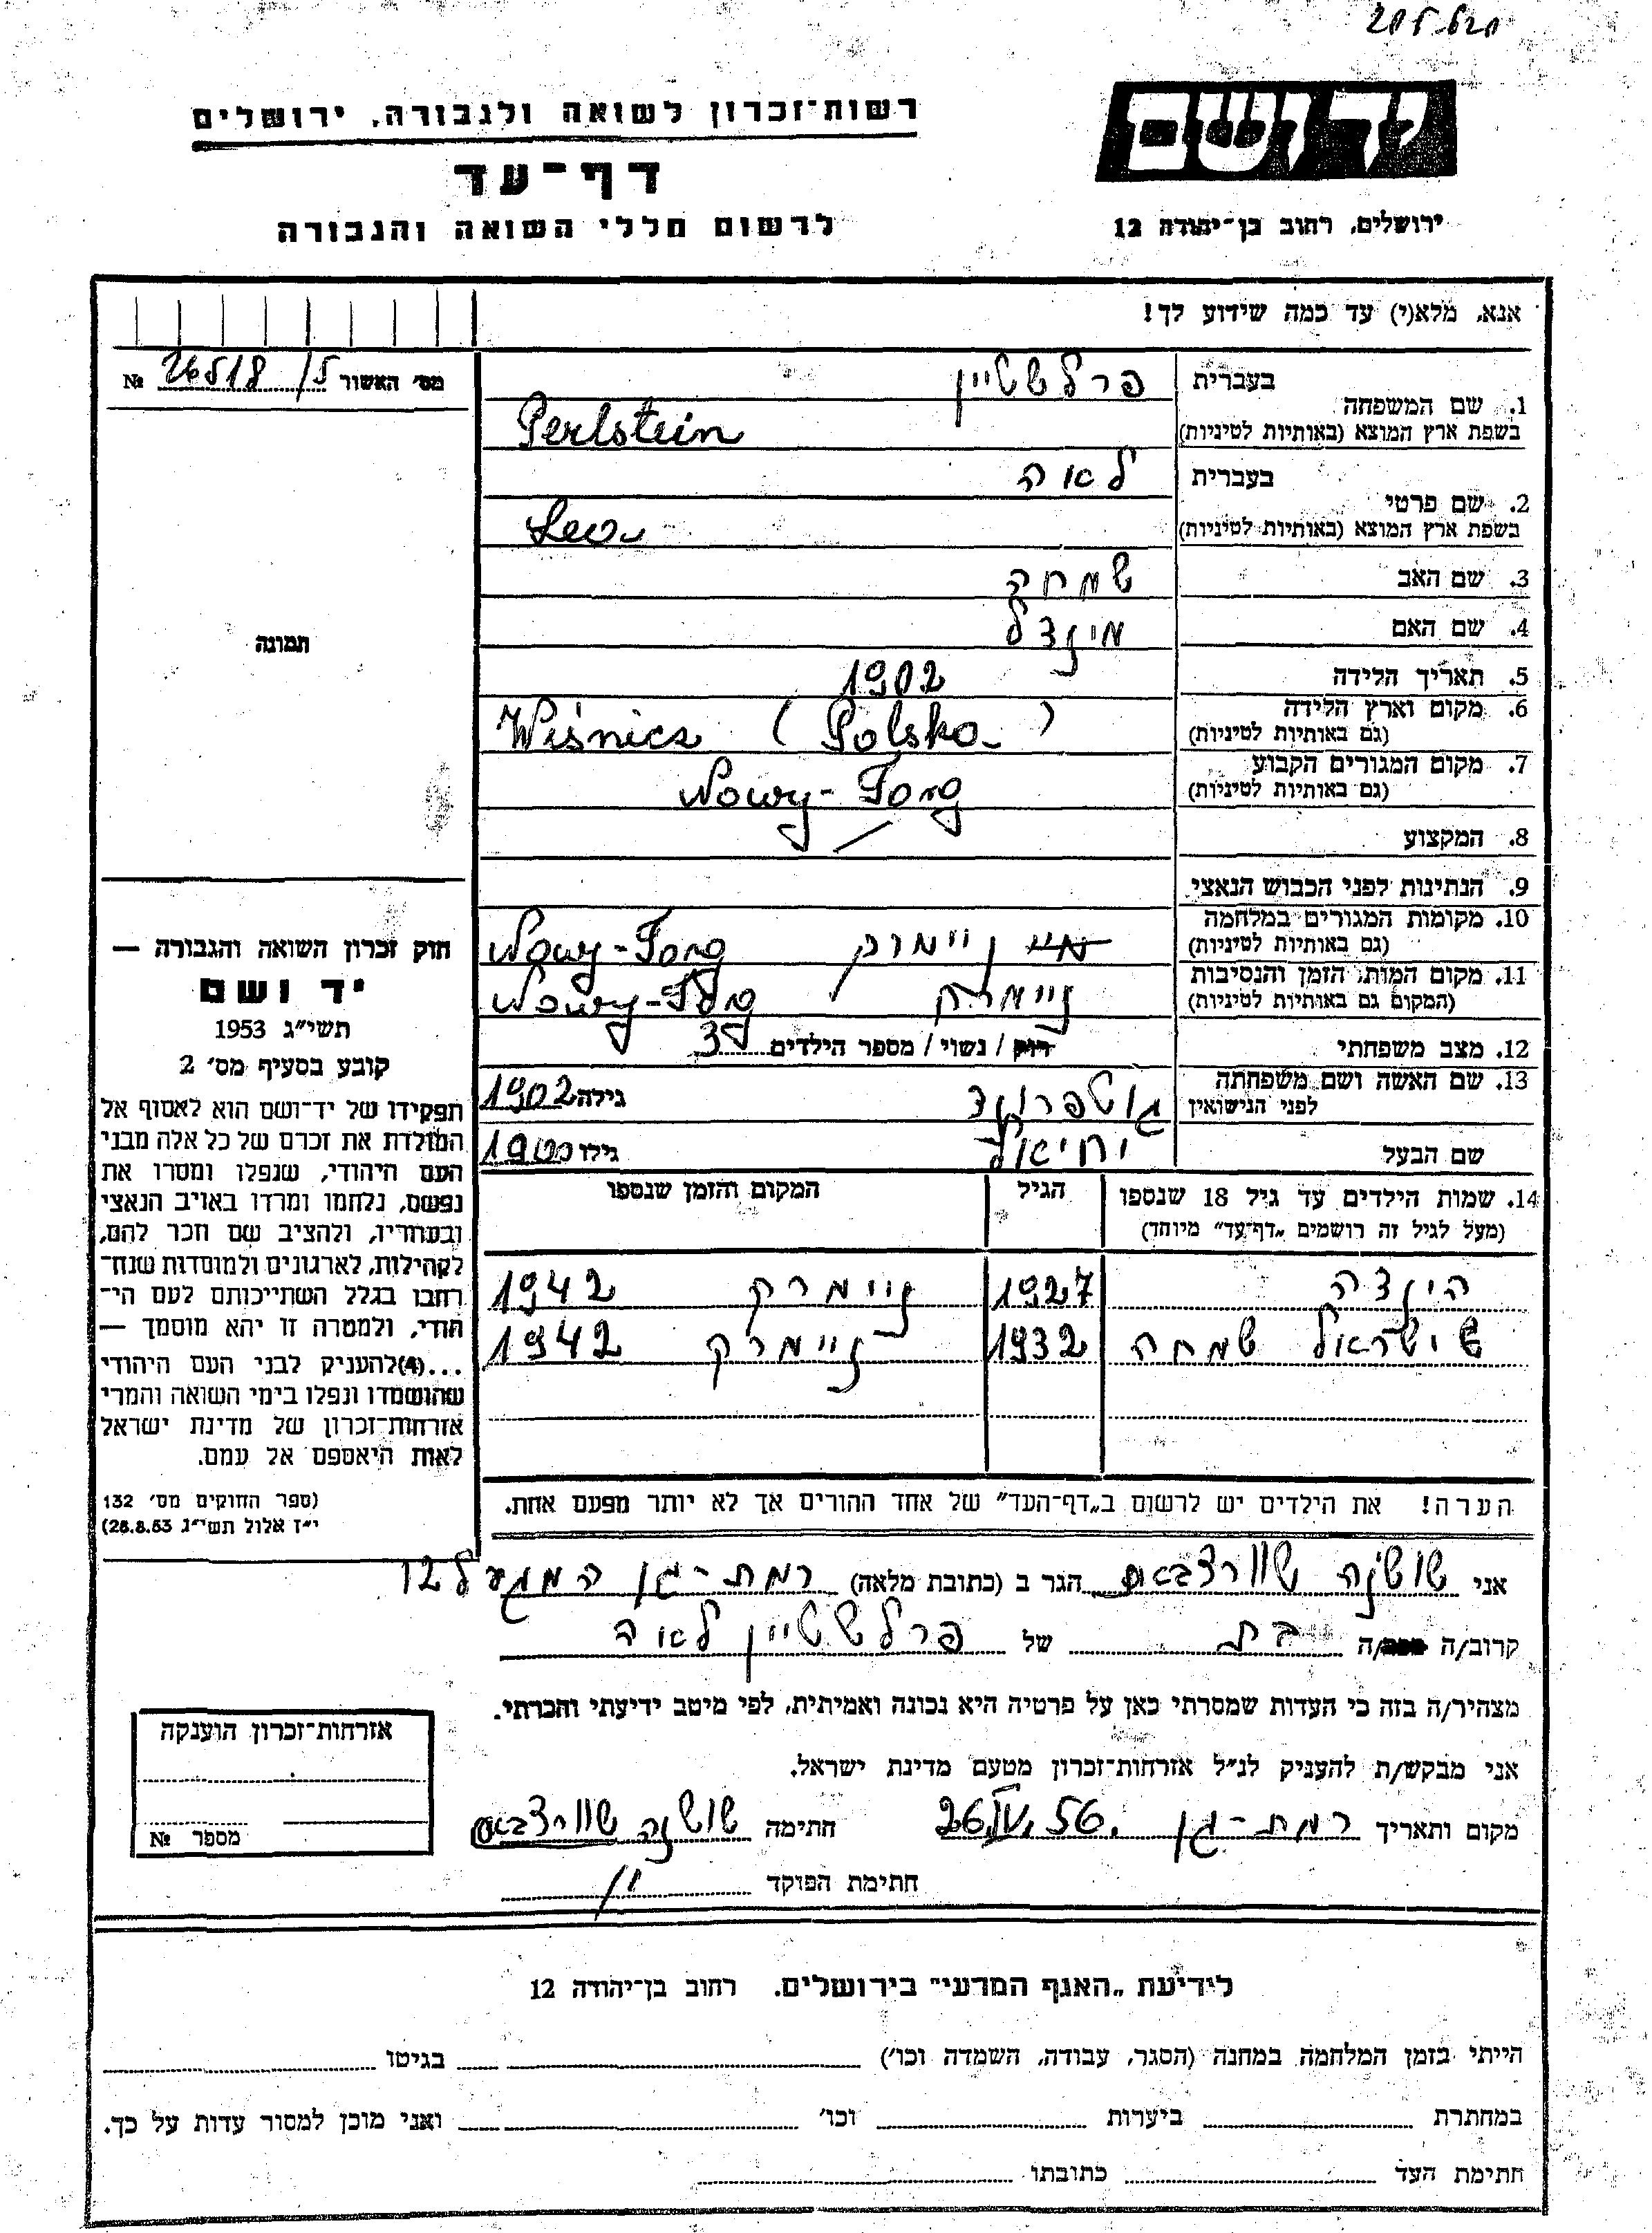 רשות־זכרון לשואה ולגבורה, ירושלים
יד ושם
דף־עד
לרשום חללי השואה והגבורה
ירושלים, רחוב בן־יהודה 12
אנא, מלא(י) עד כמה שידוע לך!
מס' האשור ל/26518 №
תמונה
חוק זכרון השואה והגבורה —
יד ושם
תשי"ג 1953
קובע בסעיף מס' 2
תפקידו של יד־ושם הוא לאסוף אל
המולדת את זכרם של כל אלה מבני
העם היהודי, שנפלו ומסרו את
נפשם, נלחמו ומרדו באויב הנאצי
ובעוזריו, ולהציב שם וזכר להם,
לקהילות, לארגונים ולמוסדות שנח־
רבו בגלל השתייכותם לעם הי־
הודי, ולמטרה זו יהא מוסמך —
...(4)להעניק לבני העם היהודי
שהושמדו ונפלו בימי השואה והמרי
אזרחות־זכרון של מדינת ישראל
לאות היאספם אל עמם.
(ספר החוקים מס' 132
י"ז אלול תשי"ג 28.8.53)
בעברית פרלשטיין
1. שם המשפחה
בשפת ארץ המוצא (באותיות לטיניות) Perlstein
בעברית לאה
2. שם פרטי
בשפת ארץ המוצא (באותיות לטיניות) Lea
3. שם האב שמחה
4. שם האם מינדל
5. תאריך הלידה 1902
6. מקום וארץ הלידה
(גם באותיות לטיניות) Wiśnicz (Polska)
7. מקום המגורים הקבוע
(גם באותיות לטיניות) Nowy-Targ
8. המקצוע /
9. הנתינות לפני הכבוש הנאצי
10. מקומות המגורים במלחמה
(גם באותיות לטיניות) ניימרק Nowy-Targ
11. מקום המות, הזמן והנסיבות
(המקום גם באותיות לטיניות) ניימרק Nowy-Targ
12. מצב משפחתי רווק / נשוי / מספר הילדים 3
13. שם האשה ושם משפחתה
לפני הנישואין גוטפרוינד גילה 1902
שם הבעל יחיאל גילו 1900
14. שמות הילדים עד גיל 18 שנספו הגיל המקום והזמן שנספו
(מעל לגיל זה רושמים "דף־עד" מיוחד)
הינדה 1927 ניימרק 1942
ישראל שמחה 1932 ניימרק 1942
הערה! את הילדים יש לרשום ב"דף־העד" של אחד ההורים אך לא יותר מפעם אחת.
אני שושנה שוורצבאום הגר ב (כתובת מלאה) רמת-גן המעגל 12
קרוב/ה בת של פרלשטיין לאה
מצהיר/ה בזה כי העדות שמסרתי כאן על פרטיה היא נכונה ואמיתית, לפי מיטב ידיעתי והכרתי.
אני מבקש/ת להעניק לנ"ל אזרחות־זכרון מטעם מדינת ישראל.
מקום ותאריך רמת-גן 26.IV.56. חתימה שושנה שוורצבאום
חתימת הפוקד
אזרחות־זכרון הוענקה
מספר №
לידיעת "האגף המדעי" בירושלים. רחוב בן־יהודה 12
הייתי בזמן המלחמה במחנה (הסגר, עבודה, השמדה וכו') בגיטו
במחתרת ביערות וכו' ואני מוכן למסור עדות על כך.
חתימת העד כתובתו